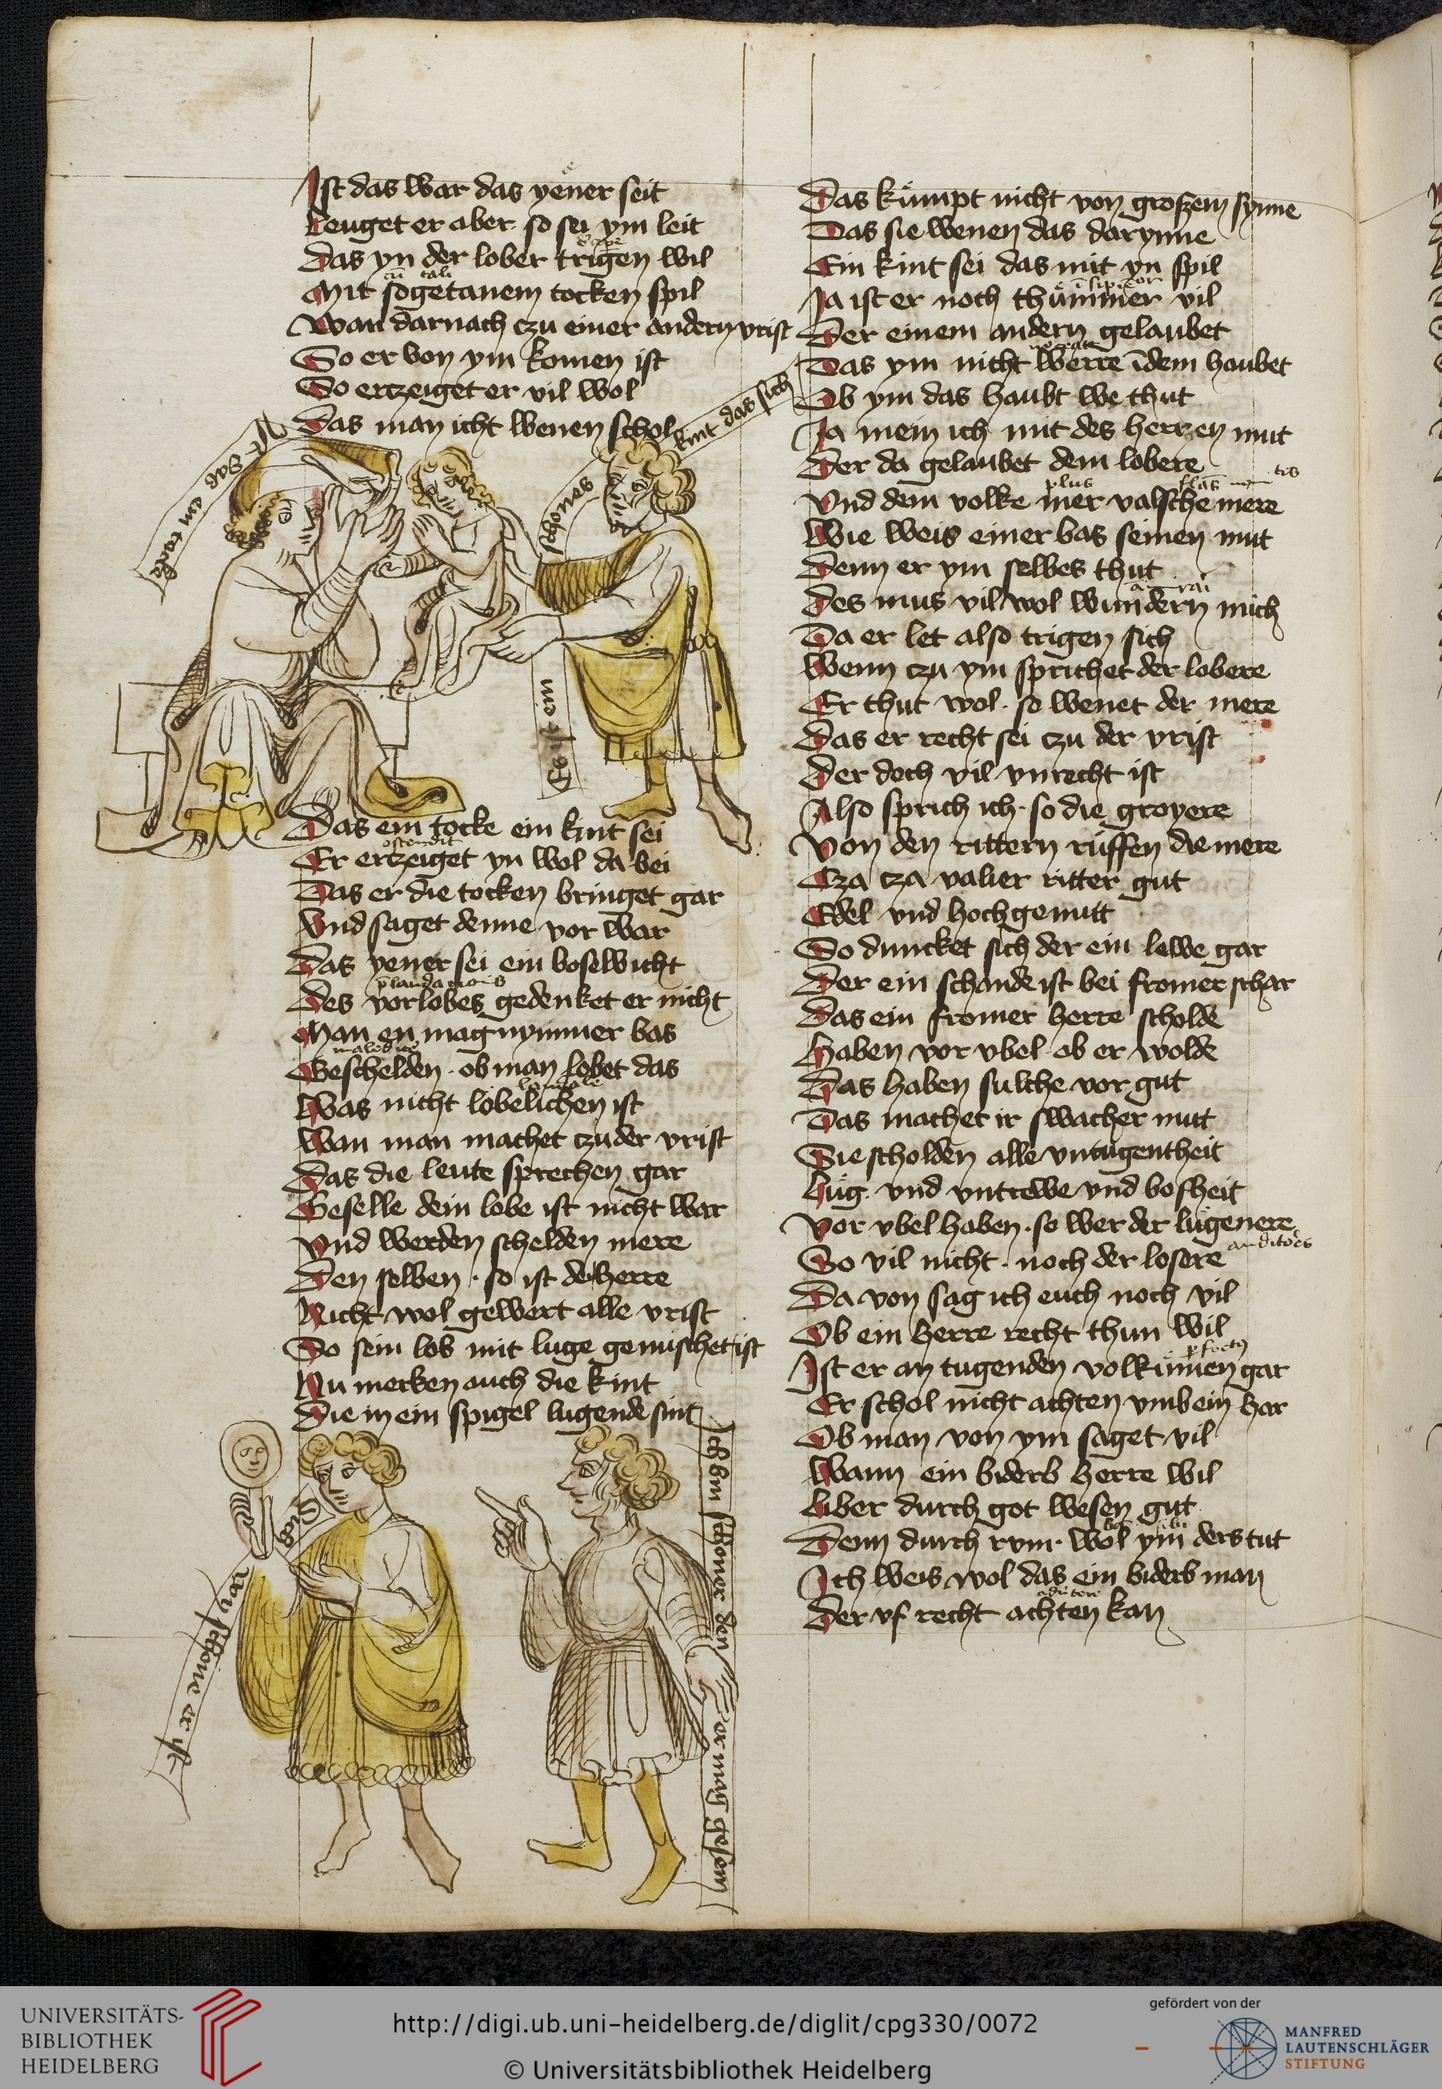 Ist das war das yener seit
Leuget er aber so sei ym leit
Das yn der lober trigen wil
Mit sogetanem tocken spil
Wan darnach czu einer andern vrist
So er von ym komen ist
So erczeiget er vil wol
Das man icht wenen schol
Ist das ein tocke
Es ist ein schones kint das sich
Das ein tocke ein kint sei
ostendit
Er erczeiget yn wol da bei
Das er die tocken bringet gar
Vnd saget denne vor war
Das yener sei ein bosewicht
Des vorlobes gedenket er nicht
Man en mag nymmer bas
Geschelden ob man lobet das
Was nicht lobelichen ist
Wan man machet czu der vrist
Das die leute sprechen gar
Geselle dein lobe ist nicht war
Vnd werden schelden mere
Den selben so ist der herre
Nicht wol gewert alle vrist
So sein lob mit luge gemischet ist
Nu merken auch die kint
Die in ein spigel lugende sint
Sich wy schone er ist
Ich bin schoner den er mag gesein
Das kumpt nicht von groszem synne
Das sie wenen das darynne
Ein kint sei das mit yn spil
Ja ist er noch thummer vil
Der einem andern gelaubet
Das ym nicht werre in dem haubet
Ob ym das haubt we thut
Ja mein ich mit des herczen mut
Der da gelaubet dem lobere
plus
Vnd dem volke mer valsche mere
Wie weis einer bas seinen mut
Denn er ym selbes thut
Des mus vil wol wundern mich
Da er let also trigen sich
Wenn czu ym sprichet der lobere
Er thut wol so wenet der mere
Das er recht sei czu der vrist
Der doch vil vnrecht ist
Also sprich ich so die groyere
Von den rittern ruffen die mere
Cza cza valier ritter gut
Edel vnd hochgemutt
So duncket sich der ein lewe gar
Der ein schande ist bei fromer schar
Das ein fromer herre scholde
Haben vor vbel ob er wolde
Das haben sulche vor gut
Das machet ir swacher mutt
Sie scholden alle vntugentheit
Lug vnd vntrewe vnd bosheit
Vor vbel haben so wer der lugenere
So vil nicht noch der losere
Da von sag ich euch noch vil
Ob ein herre recht thun wil
Ist er an tugenden volkumen gar
Er schol nicht achten vmb ein har
Ob man von ym saget vil
Wann ein biderb herre wil
Liber durch got wesen gut
Denn durch rum wol ym ders tut
Ich weis wol das ein biderb man
Der vf recht achten kan
UNIVERSITÄTS-
BIBLIOTHEK
HEIDELBERG
http://digi.ub.uni-heidelberg.de/diglit/cpg330/0072
© Universitätsbibliothek Heidelberg
gefördert von der
MANFRED
LAUTENSCHLÄGER
STIFTUNG